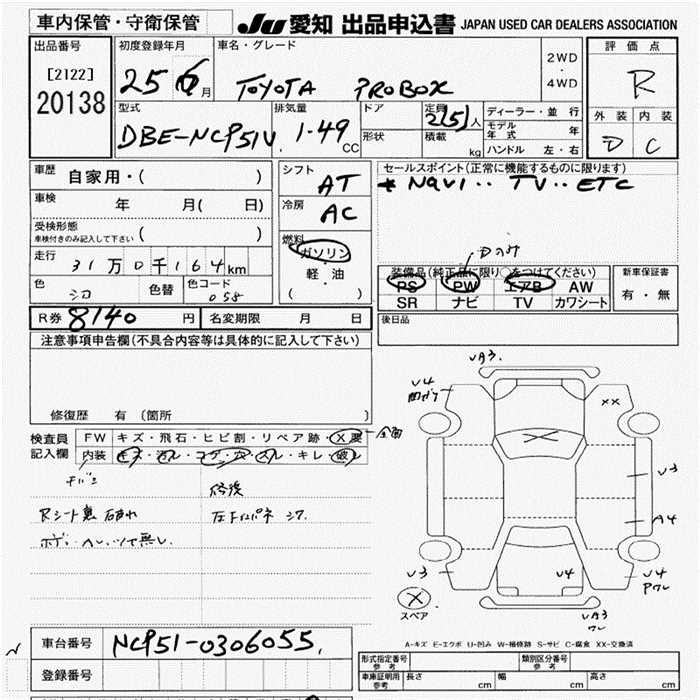 車内保管・守衛保管
JU 愛知 出品申込書 JAPAN USED CAR DEALERS ASSOCIATION
出品番号
[2122]
20138
初度登録年月
25 6 月
車名・グレード
TOYOTA PROBOX
2WD
・
4WD
評価点
R
外装 内装
D C
型式
DBE-NCP51V
排気量
1.49 CC
ドア
形状
定員
2(5)人
積載
kg
ディーラー・並行
モデル年式 年
ハンドル 左・右
車歴
自家用・( )
車検
年 月( 日)
受検形態
車検付きのみ記入して下さい ( )
走行
31万0千164km
色
シロ
色替
色コード
058
シフト
AT
冷房
AC
燃料
ガソリン
・
軽・油
( )
セールスポイント(正常に機能するものに限ります)
* NAVI‥TV‥ETC
Dのみ
装備品(純正品に限り○をつけてください)
PS PW エアB AW
SR ナビ TV カワシート
新車保証書
有・無
後日品
R券 8140 円
名変期限 月 日
注意事項申告欄(不具合内容等は具体的に記入して下さい)
修復歴 有(箇所 )
検査員
記入欄
FW キズ・飛石・ヒビ割・リペア跡・X要
内装 キズ・汚レ・コゲ・穴・スレ・キレ・破レ
全面
Rシート裏
車台番号 NCP51-0306055
登録番号
VA3
V4
XX
V3
A4
V3
V4
V4
VA3
ワレ
X
スペア
A-キズ E-エクボ U-凹み W-補修跡 S-サビ C-腐食 XX-交換済
形式指定番号
参考
類別区分番号
参考
車庫証明用
参考
長さ cm 幅 cm 高さ cm